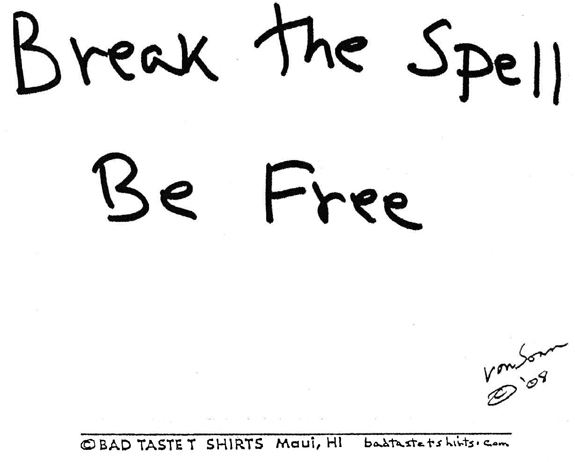 Break the Spell
Be Free
© '08
© BAD TASTE T SHIRTS Maui, HI badtastetshirts.com